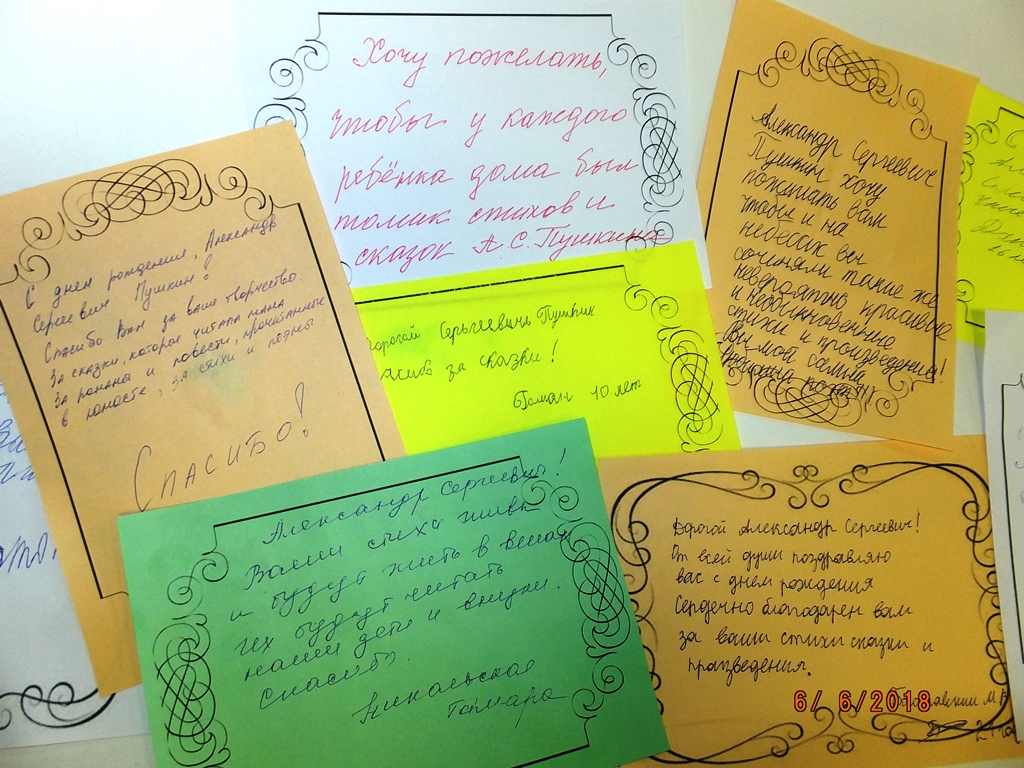 Хочу пожелать,
чтобы у каждого
ребёнка дома был
томик стихов и
сказок А.С. Пушкина
С днем рождения, Александр
Сергеевич Пушкин!
Спасибо Вам за ваше творчество.
За сказки, которые читала мама
За романы и повести, прочитанные
в юности, за стихи и поэмы
Спасибо!
Дорогой Сергьеевичь Пушкин
спасибо за сказки!
10 лет
Александр Сергеевич
Пушкин хочу
пожелать вам
чтобы и на
небесах вы
сочиняли такие же
невероятно красивые
и необыкновенные
стихи и произведения!
Вы мой самый
Александр Сергеевич!
Ваши стихи живы
и будут жить в веках
их будут читать
наши дети и внуки.
Спасибо.
Никольская
Тамара
Дорогой Александр Сергеевич!
От всей души поздравляю
вас с днем рождения
Сердечно благодарен вам
за ваши стихи сказки и
произведения.
6/ 6/2018